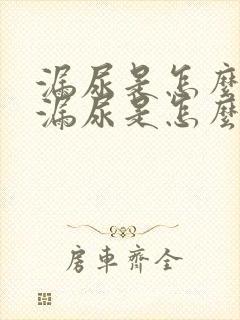 漏尿是怎麼
漏尿是怎麼
房車齊全